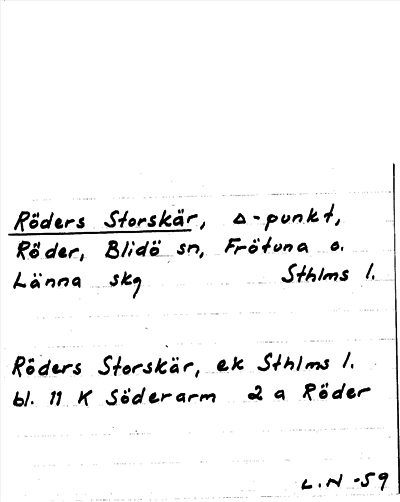 Röders Storskär, Δ-punkt,
Röder, Blidö sn, Frötuna o.
Länna skg Sthlms l.
Röders Storskär, ek Sthlms l.
bl. 11 K Söderarm 2 a Röder
L.N -59